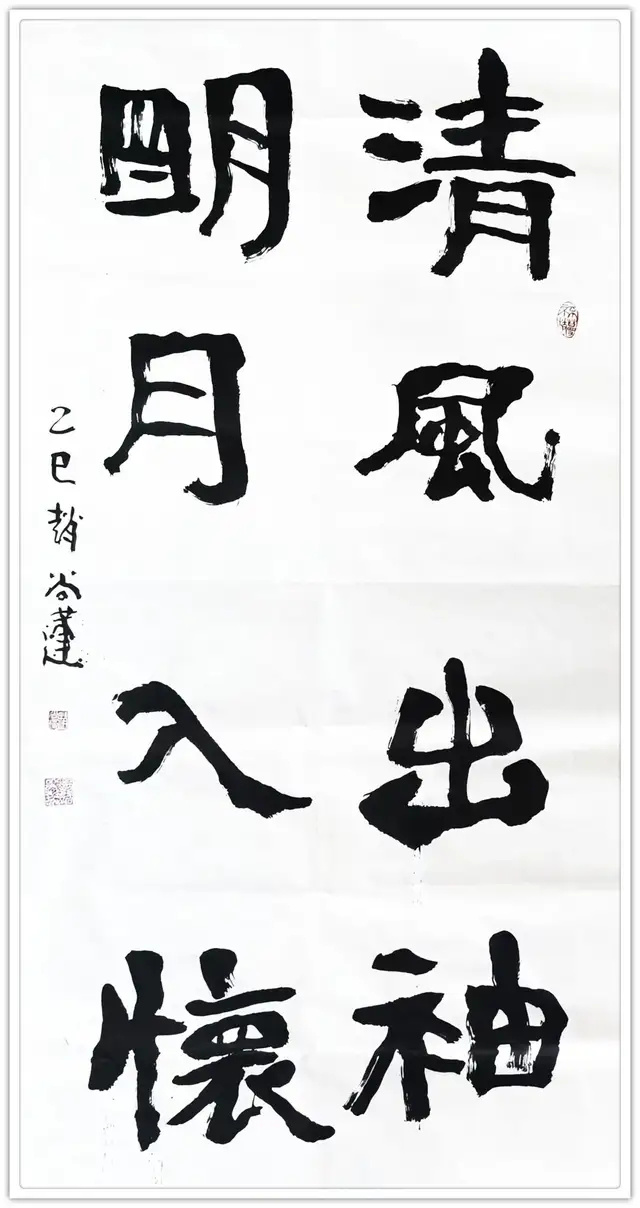 清風出袖
明月入懷
乙巳趙尚蓮